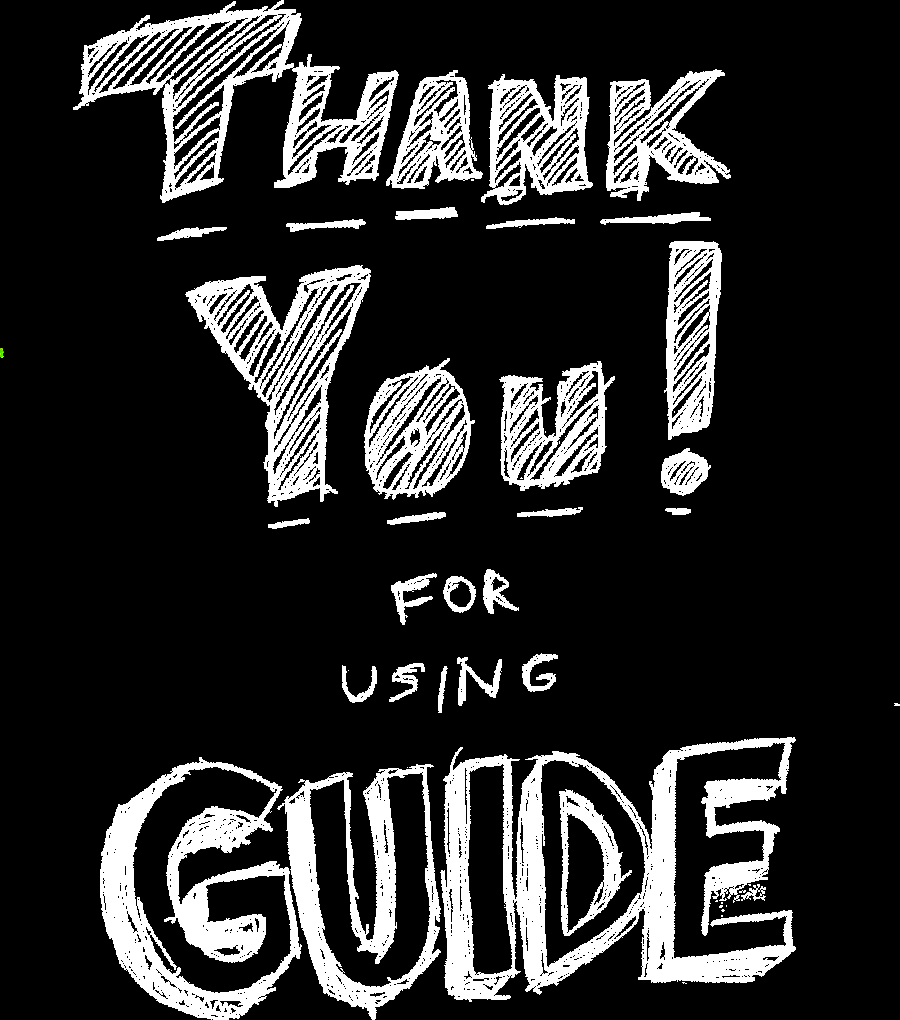 THANK
YOU!
FOR
USING
GUIDE